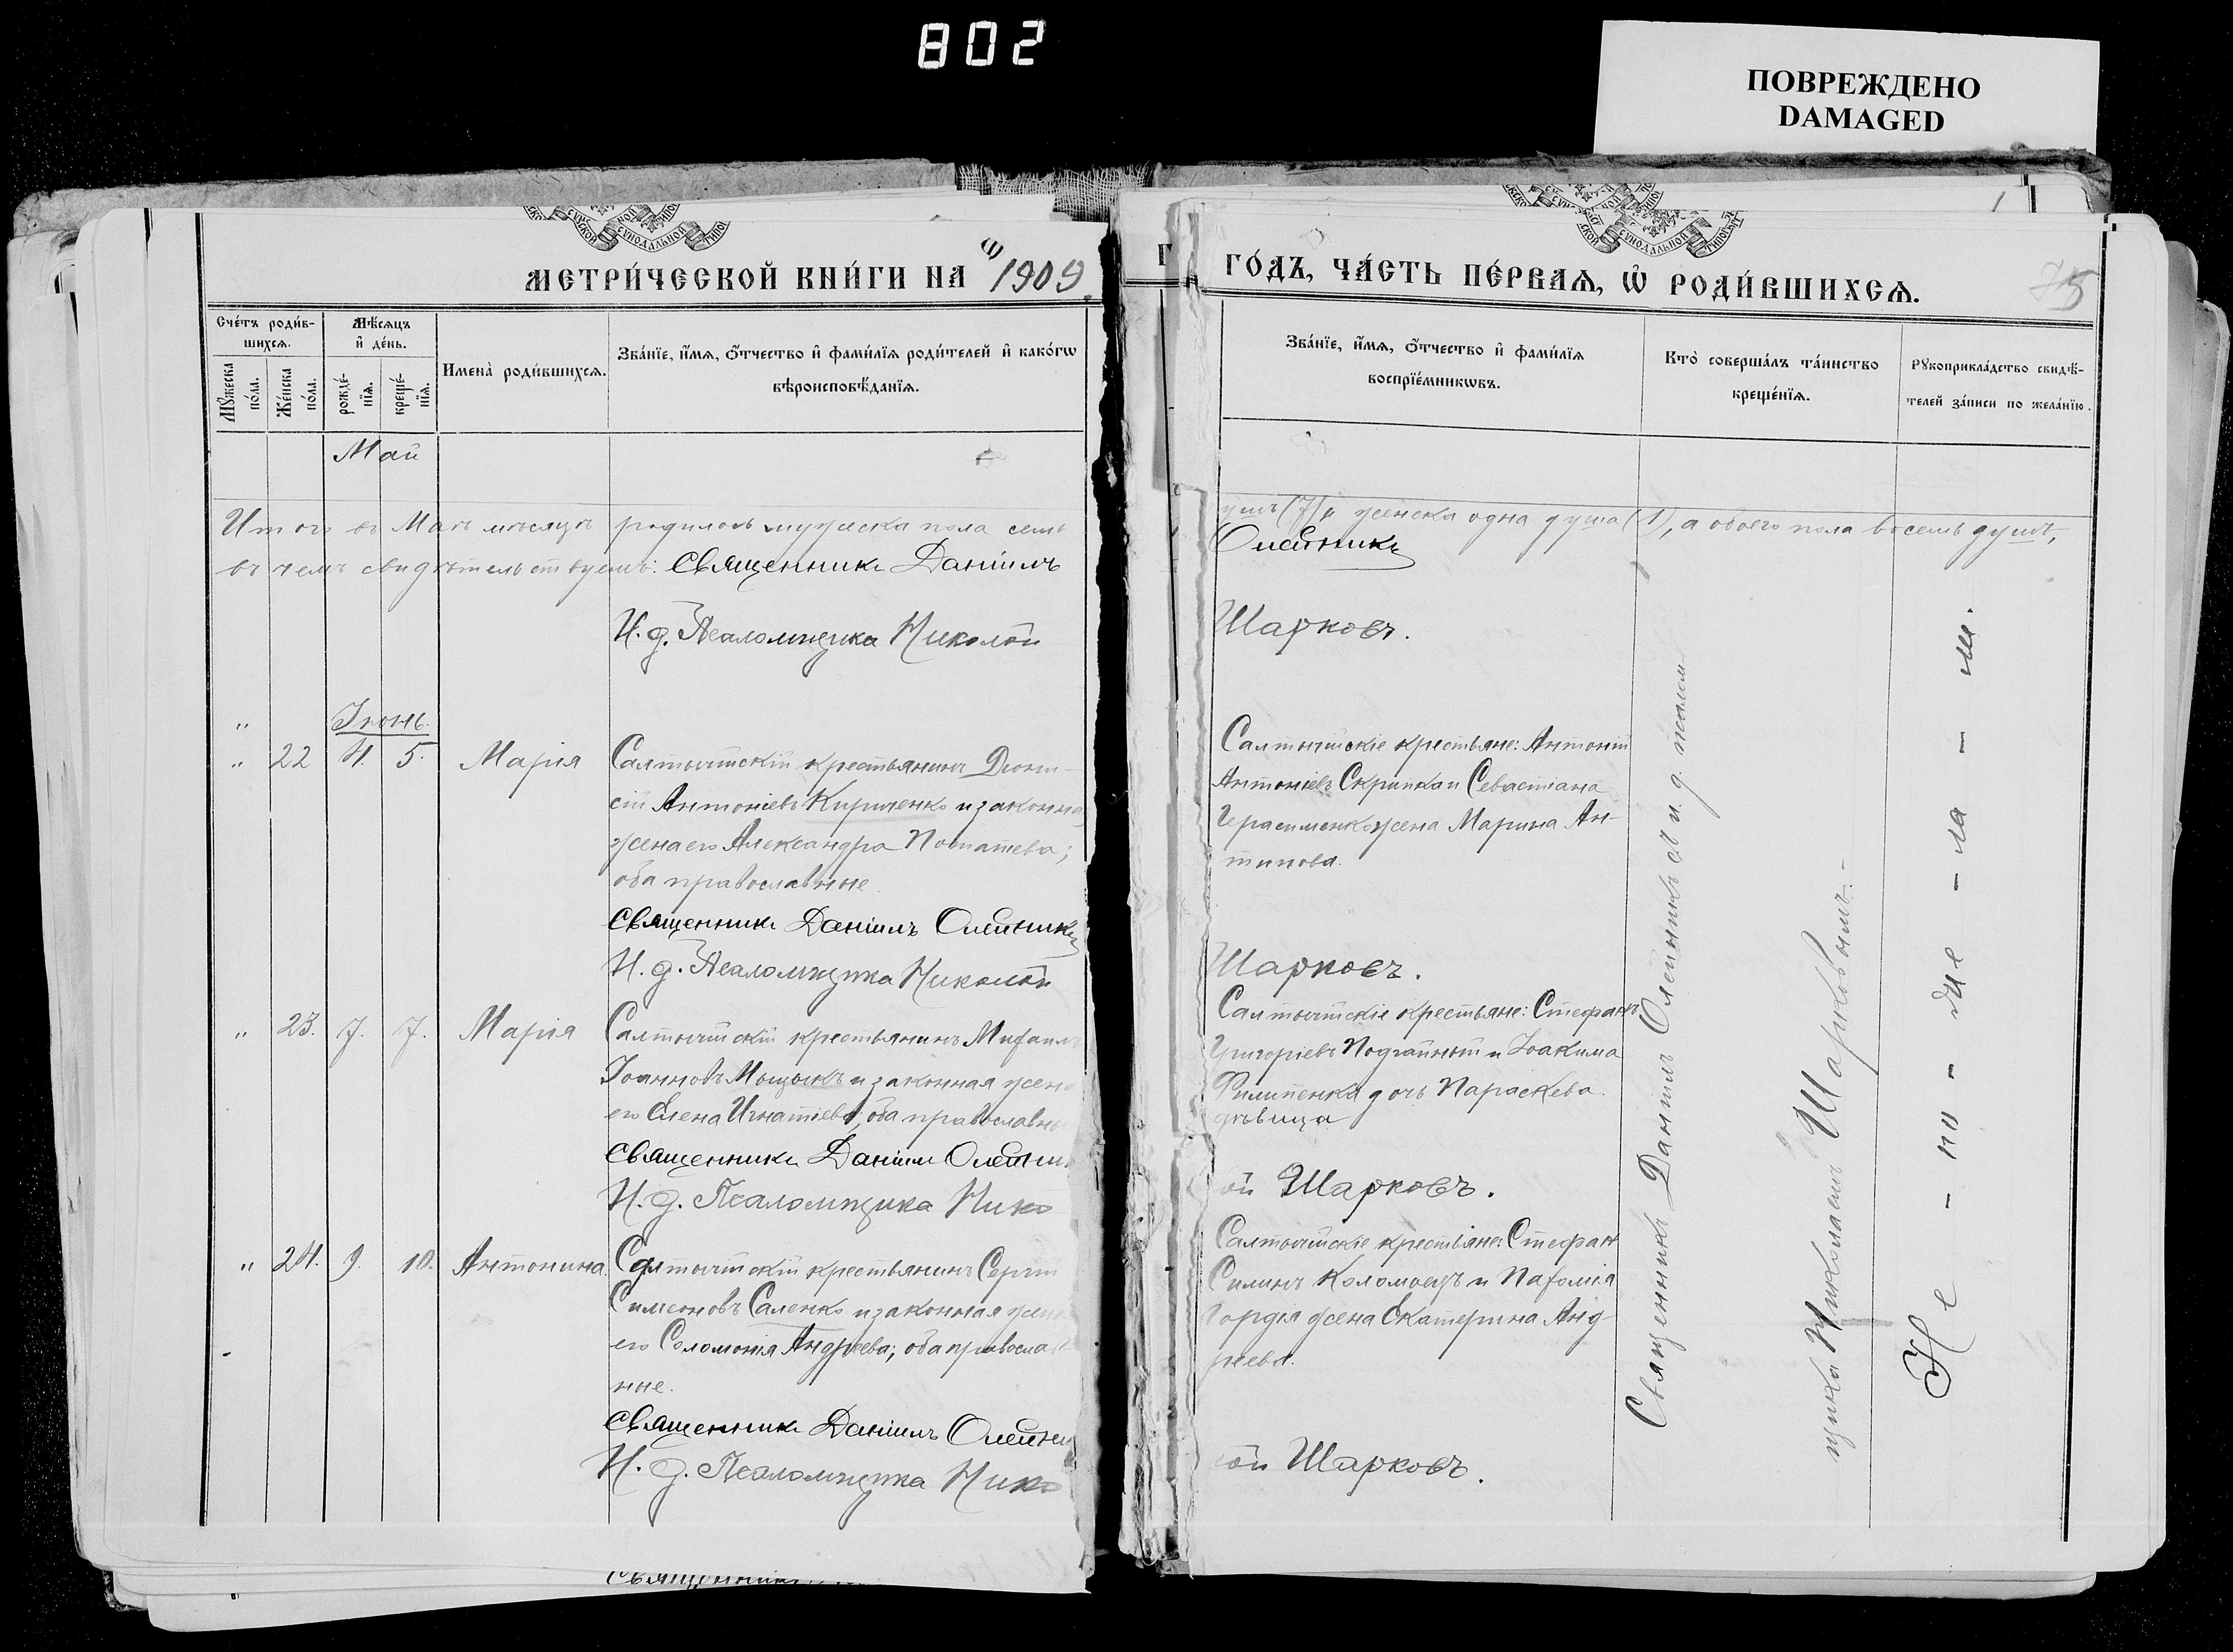 802
ПОВРЕЖДЕНО
DAMAGED
МЕТРИ́ЧЕСКОЙ КНИ́ГИ НА 1909
ГО́ДЪ, ЧА́СТЬ ПЕ́РВАѦ, Ѡ҆ РОДИ́ВШИХСѦ.
75
Сче́тъ роди́вшихсѧ.
Мꙋ́жеска по́ла.
Же́нска по́ла.
Мѣ́сѧцъ и҆ де́нь.
рожде́нїѧ.
креще́нїѧ.
Имена̀ роди́вшихсѧ.
Зва́нїе, и҆́мѧ, ѻ҆́тчество и҆ фами́лїѧ роди́телей и҆ како́гѡ
вѣроисповѣ́данїѧ.
Зва́нїе, и҆́мѧ, ѻ҆́тчество и҆ фами́лїѧ
воспрїе́мникѡвъ.
Кто̀ соверша́лъ та́инство
креще́нїѧ.
Рꙋкоприкла́дство свидѣ́-
телей за́писи по жела́нїю.
Май
Итого въ Маѣ мѣсяцѣ родилось мужеска пола семь
душъ (7) и женска одна душа (1), а обоего пола восемь душъ,
въ чемъ свидѣтельствуемъ: Священникъ Даніилъ
Олейникъ
И. д. Псаломщика Николай
Шарковъ.
Іюнь.
" 22 4. 5. Марія
Салтычійскій крестьянинъ Діони-
сій Антоніевъ Кириченко и законна
жена его Александра Потапіева;
оба православные
Священникъ Даніилъ Олейникъ
И. д. Псаломщика Николай
Салтычійскіе крестьяне: Антоній
Антоніевъ Скрипка и Севастіана
Герасименко жена Марина Ан-
типова.
Шарковъ.
" 23. 7. 7. Марія
Салтычійскій крестьянинъ Михаилъ
Іоанновъ Мыцыкъ и законная жена
его Елена Игнатіева; оба православны
Священникъ Даніилъ Олейник
И. д. Псаломщика Нико
Салтычійскіе крестьяне: Стефанъ
Григоріевъ Подгайный и Іоакима
Филипенка дочь Параскева
дѣвица
ай Шарковъ.
" 24. 9. 10. Антонина.
Салтычійскій крестьянинъ Сергій
Симеоновъ Саленко и законная жена
его Соломонія Андреева; оба православ
ные.
Священникъ Даніилъ Олейни
И. д. Псаломщика Нико
Салтычійскіе крестьяне: Стефан
Силинъ Коломоецъ и Пахомія
Гордія жена Екатерина Анд-
реева.
лай Шарковъ.
Священникъ Даніилъ Олейникъ съ и. д. псалом
щика Николаемъ Шарковымъ.-
Не - по - же - ла - ли.